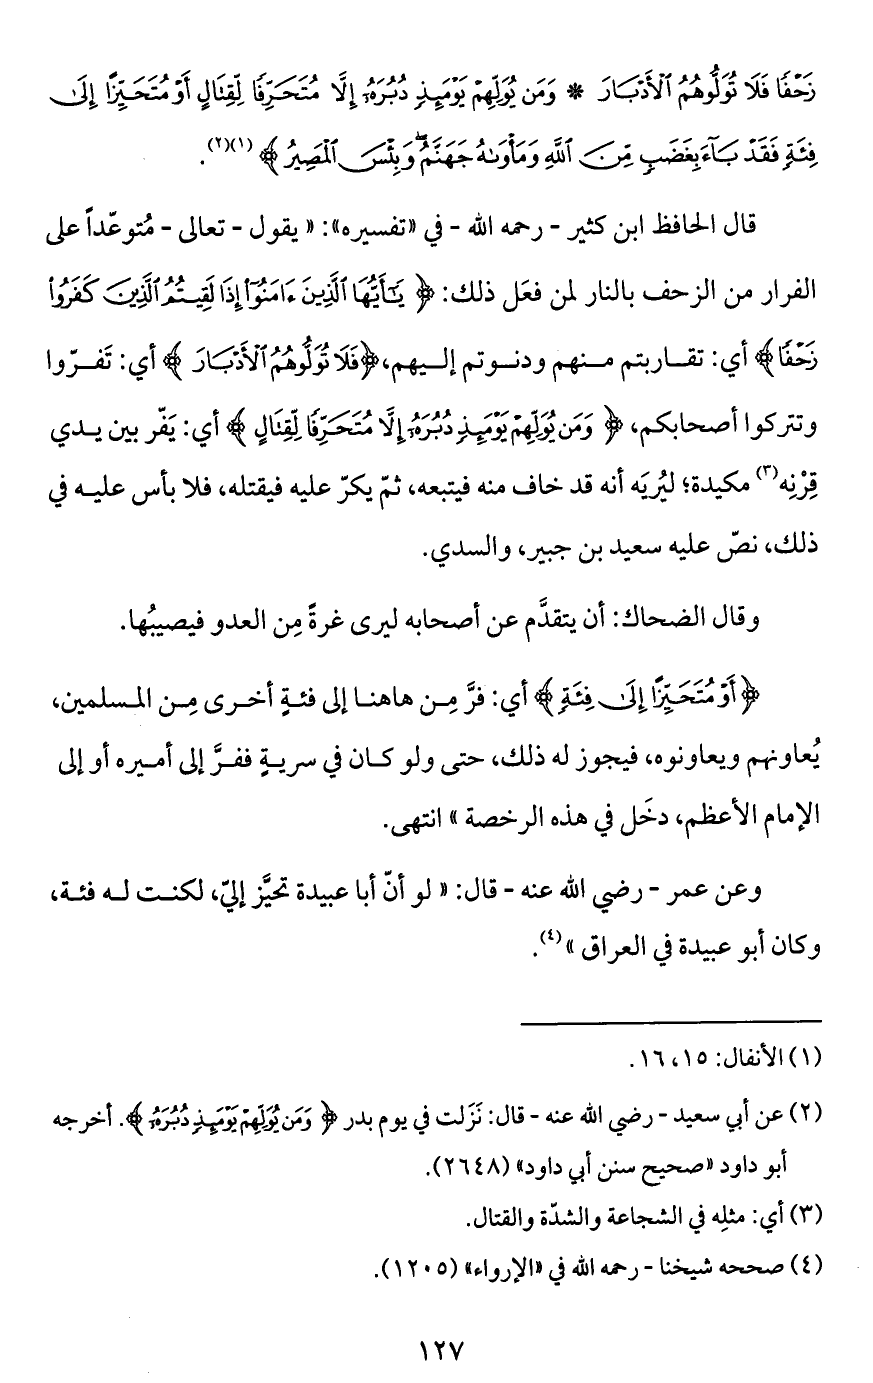 زَحْفًا فَلَا تُوَلُّوهُمُ ٱلْأَدْبَارَ * وَمَن يُوَلِّهِمْ يَوْمَئِذٍ دُبُرَهُۥٓ إِلَّا مُتَحَرِّفًا لِّقِتَالٍ أَوْ مُتَحَيِّزًا إِلَىٰ
فِئَةٍ فَقَدْ بَآءَ بِغَضَبٍ مِّنَ ٱللَّهِ وَمَأْوَىٰهُ جَهَنَّمُ ۖ وَبِئْسَ ٱلْمَصِيرُ ﴾ (١)(٢).
قال الحافظ ابن كثير - رحمه الله - في «تفسيره»: « يقول - تعالى - مُتوعّداً على
الفرار من الزحف بالنار لمن فعَل ذلك: ﴿ يَٰٓأَيُّهَا ٱلَّذِينَ ءَامَنُوٓا۟ إِذَا لَقِيتُمُ ٱلَّذِينَ كَفَرُوا۟
زَحْفًا﴾ أي: تقاربتم منهم ودنوتم إليهم، ﴿فَلَا تُوَلُّوهُمُ ٱلْأَدْبَارَ ﴾ أي: تَفرّوا
وتتركوا أصحابكم، ﴿ وَمَن يُوَلِّهِمْ يَوْمَئِذٍ دُبُرَهُۥٓ إِلَّا مُتَحَرِّفًا لِّقِتَالٍ ﴾ أي: يَفّر بين يدي
قِرْنِه(٣) مكيدة؛ ليُريَه أنه قد خاف منه فيتبعه، ثمّ يكرّ عليه فيقتله، فلا بأس عليه في
ذلك، نصّ عليه سعيد بن جبير، والسدي.
وقال الضحاك: أن يتقدَّم عن أصحابه ليرى غرةً مِن العدو فيصيبُها.
﴿ أَوْ مُتَحَيِّزًا إِلَىٰ فِئَةٍ ﴾ أي: فرَّ مِن هاهنا إلى فئةٍ أخرى مِن المسلمين،
يُعاونهم ويعاونوه، فيجوز له ذلك، حتى ولو كان في سريةٍ ففرَّ إلى أميره أو إلى
الإمام الأعظم، دخَل في هذه الرخصة » انتهى.
وعن عمر - رضي الله عنه - قال: « لو أنّ أبا عبيدة تحيَّز إليّ، لكنت له فئة،
وكان أبو عبيدة في العراق »(٤).
(١) الأنفال: ١٥، ١٦.
(٢) عن أبي سعيد - رضي الله عنه - قال: نَزَلت في يوم بدر ﴿ وَمَن يُوَلِّهِمْ يَوْمَئِذٍ دُبُرَهُۥٓ ﴾. أخرجه
أبو داود «صحيح سنن أبي داود» (٢٦٤٨).
(٣) أي: مثلِه في الشجاعة والشدّة والقتال.
(٤) صححه شيخنا - رحمه الله في «الإرواء» (١٢٠٥).
١٢٧